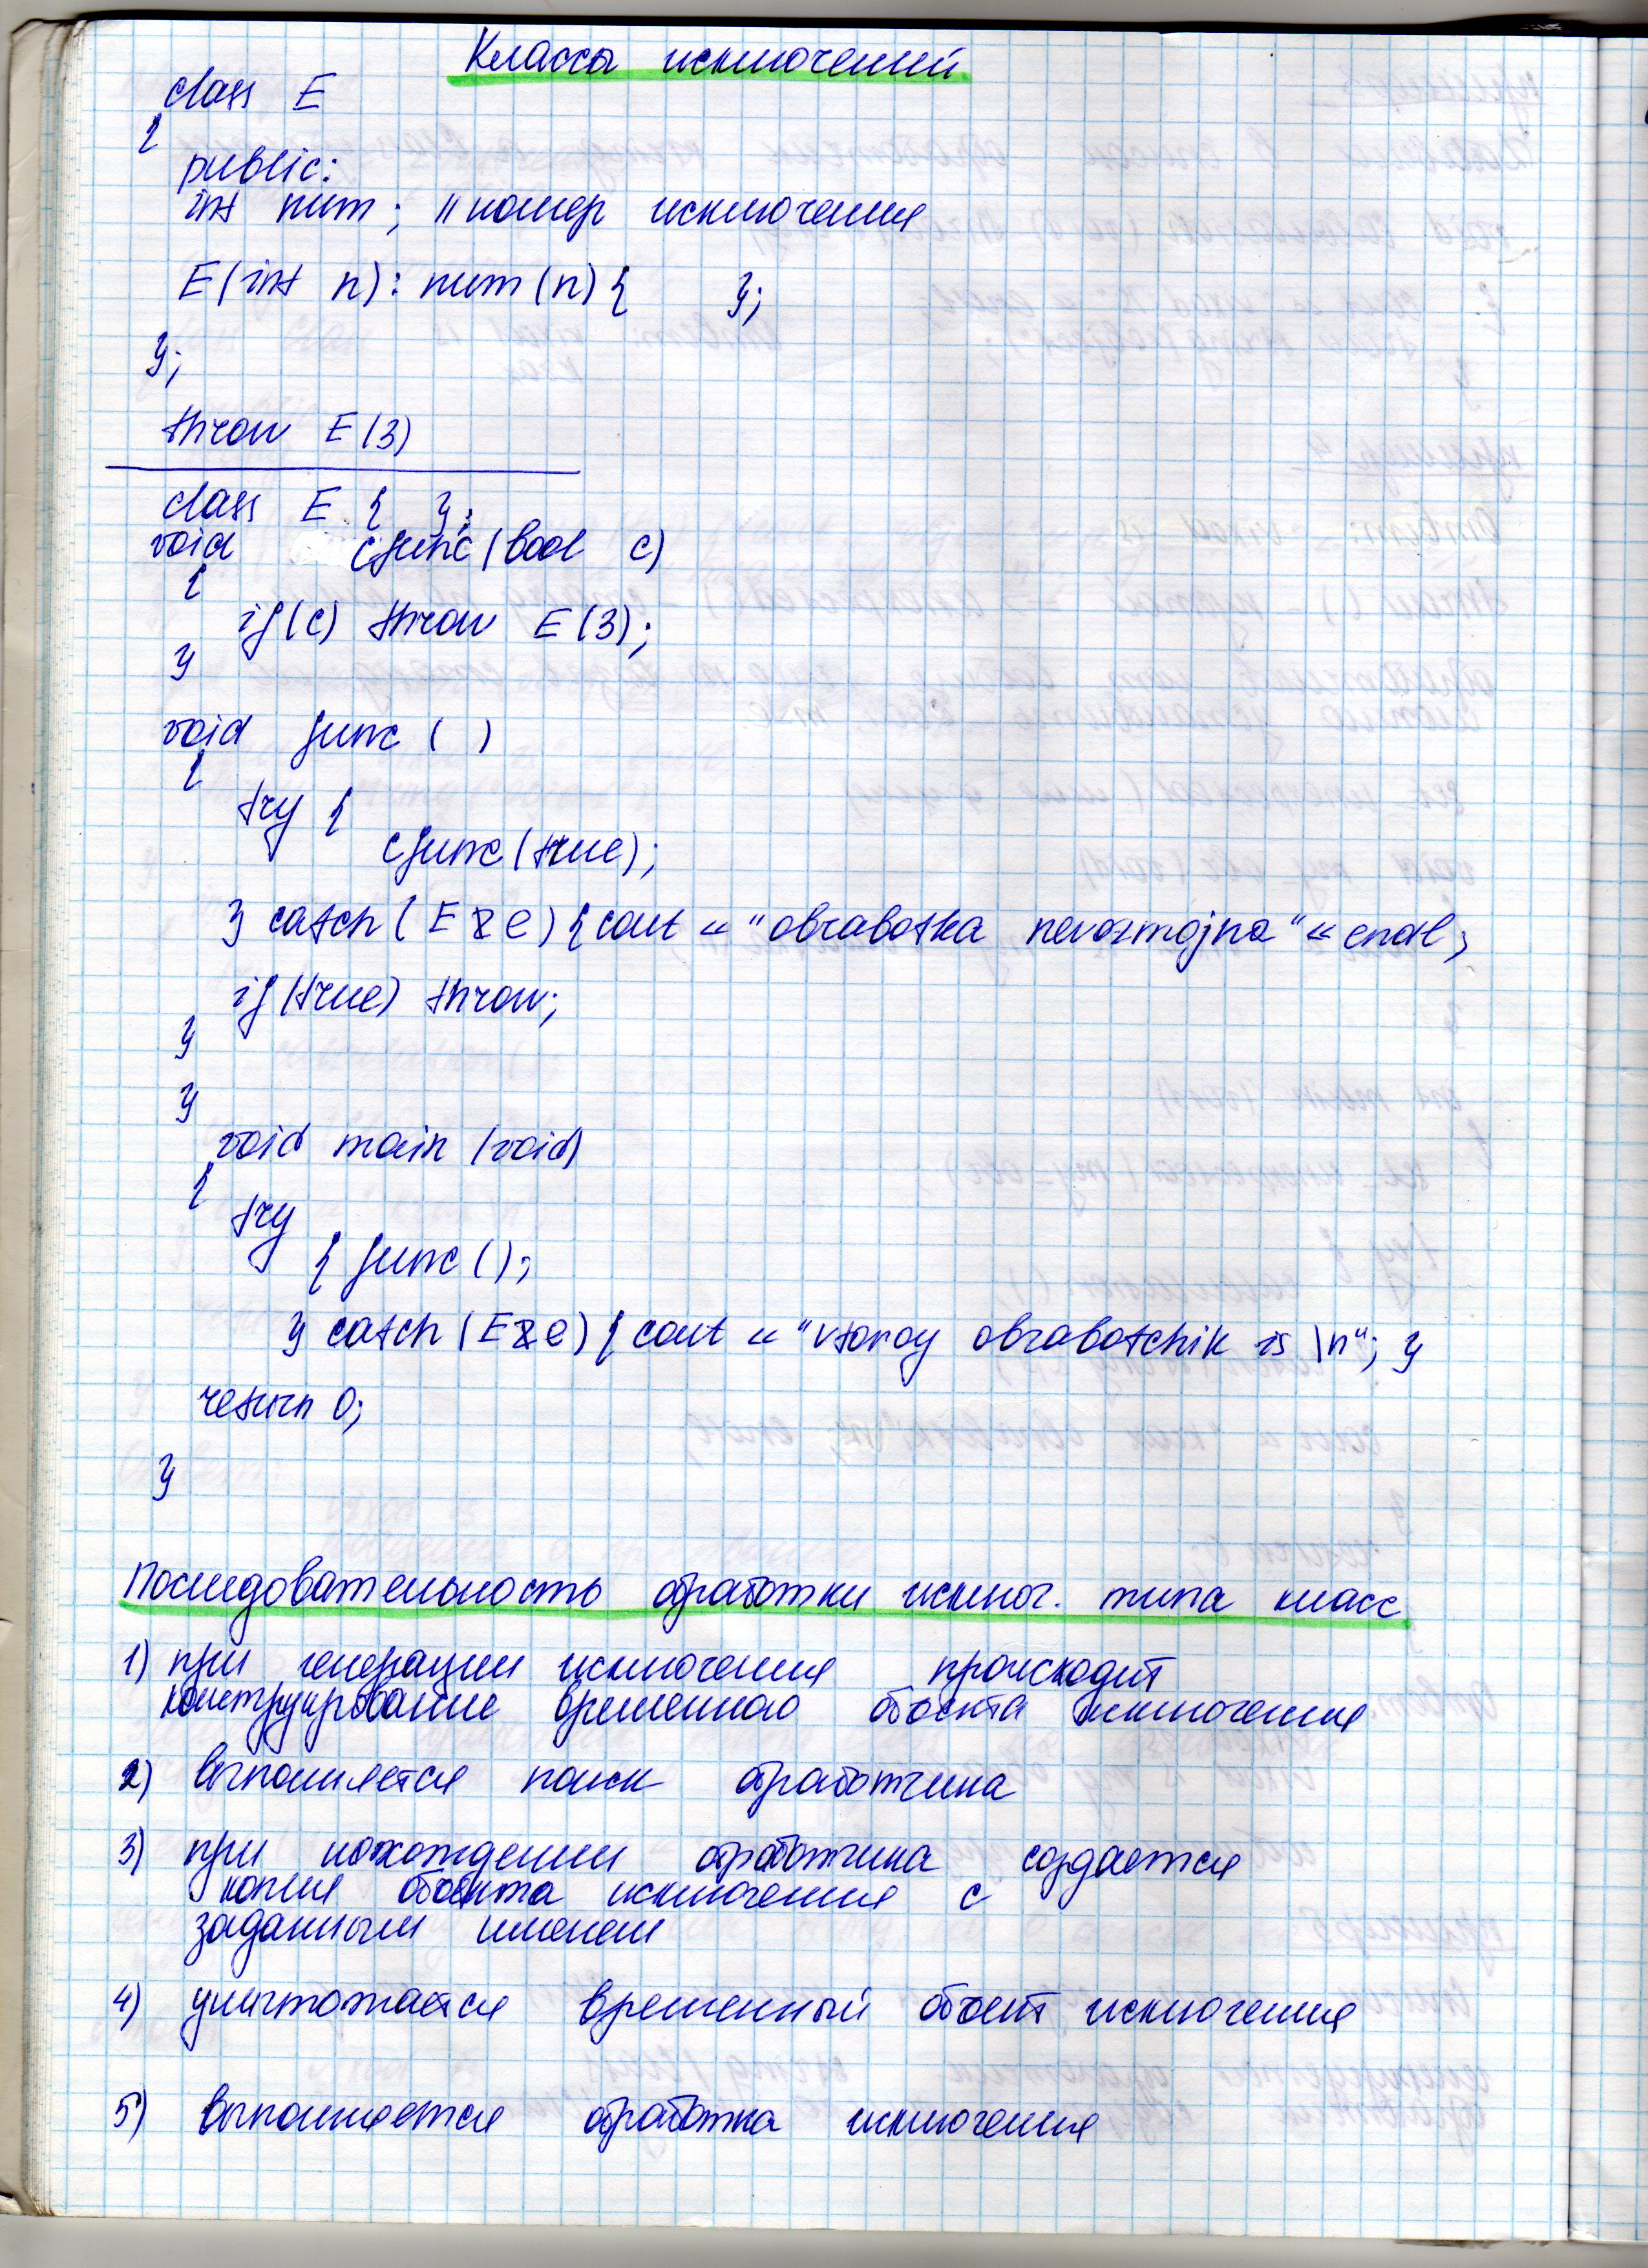 Классы исключений
class E
{
public:
int num; //номер исключения
E(int n): num(n){ };
};
throw E(3)
class E { };
void cfunc(bool c)
{
if(c) throw E(3);
}
void func( )
{
try {
cfunc(true);
} catch(E&e){cout << "obrabotka nevozmojna" << endl;
if(true) throw;
}
}
void main(void)
{
try
{ func();
} catch(E&e){cout << "vtoroy obrabotchik is \n"; }
return 0;
}
Последовательность обработки исключ. типа класс
1) при генерации исключения происходит
конструирование временного объекта исключения
2) выполняется поиск обработчика
3) при нахождении обработчика создается
копия объекта исключения с
заданным именем
4) уничтожается временный объект исключения
5) выполняется обработка исключения